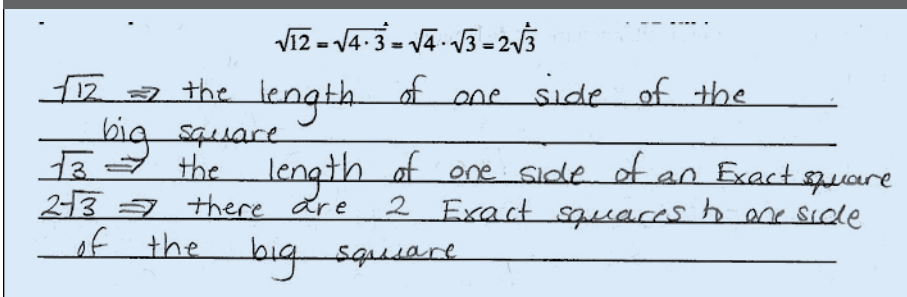 √12 = √4 · 3 = √4 · √3 = 2√3
√12 ⇒ the length of one side of the
big square
√3 ⇒ the length of one side of an Exact square
2√3 ⇒ there are 2 Exact squares to one side
of the big square